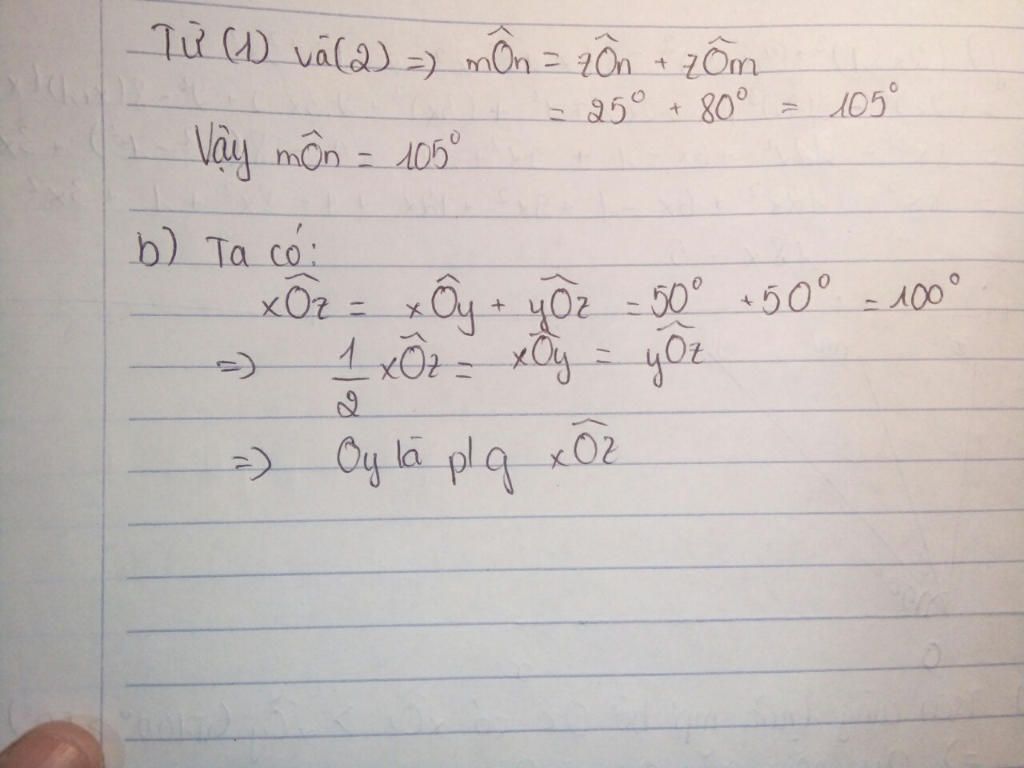 Từ (1) và (2) => mÔn = zÔn + zÔm
= 25° + 80° = 105°
Vậy mÔn = 105°
b) Ta có:
xÔz = xÔy + yÔz = 50° + 50° = 100°
=> 1/2 xÔz = xÔy = yÔz
=> Oy là p/g xÔz